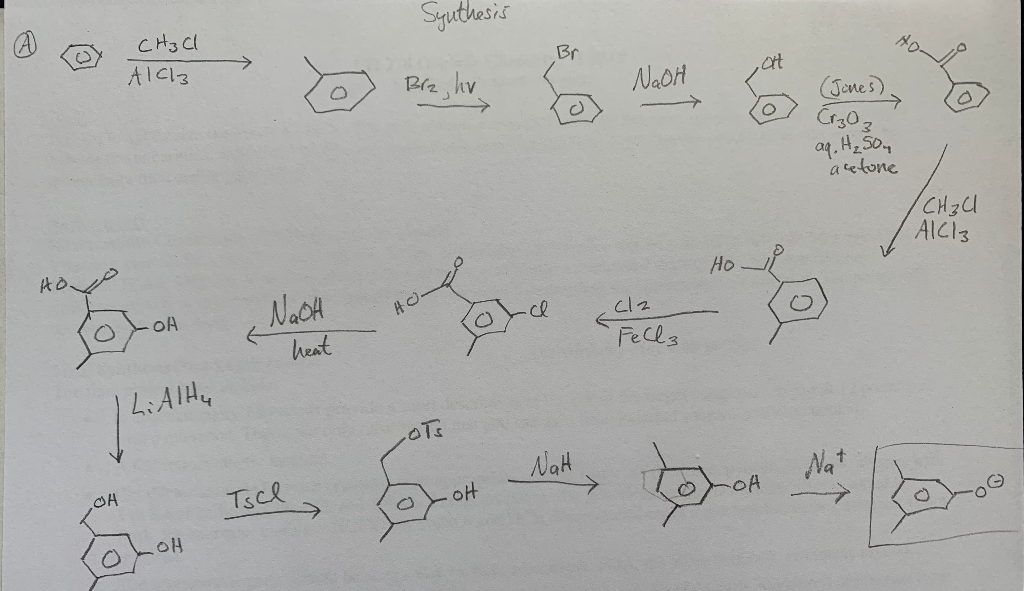 Synthesis
A
CH3Cl
AlCl3
Br2, hν
Br
NaOH
OH
(Jones)
Cr3O3
aq. H2SO4
acetone
HO
O
CH3Cl
AlCl3
HO
O
Cl2
FeCl3
HO
O
Cl
NaOH
heat
HO
O
OH
LiAlH4
OH
OH
TsCl
OTs
OH
NaH
OH
Na+
O⊖